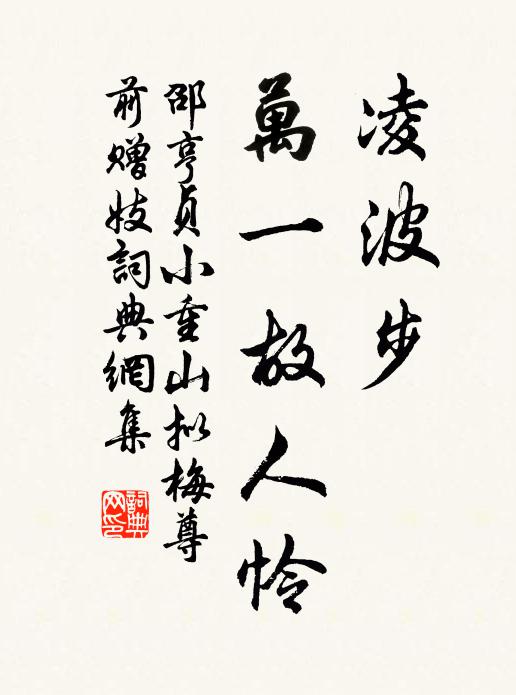 凌波步
萬一故人怜
邵亨貞小重山拟梅尊
前赠妓詞典網集
詞典
网印